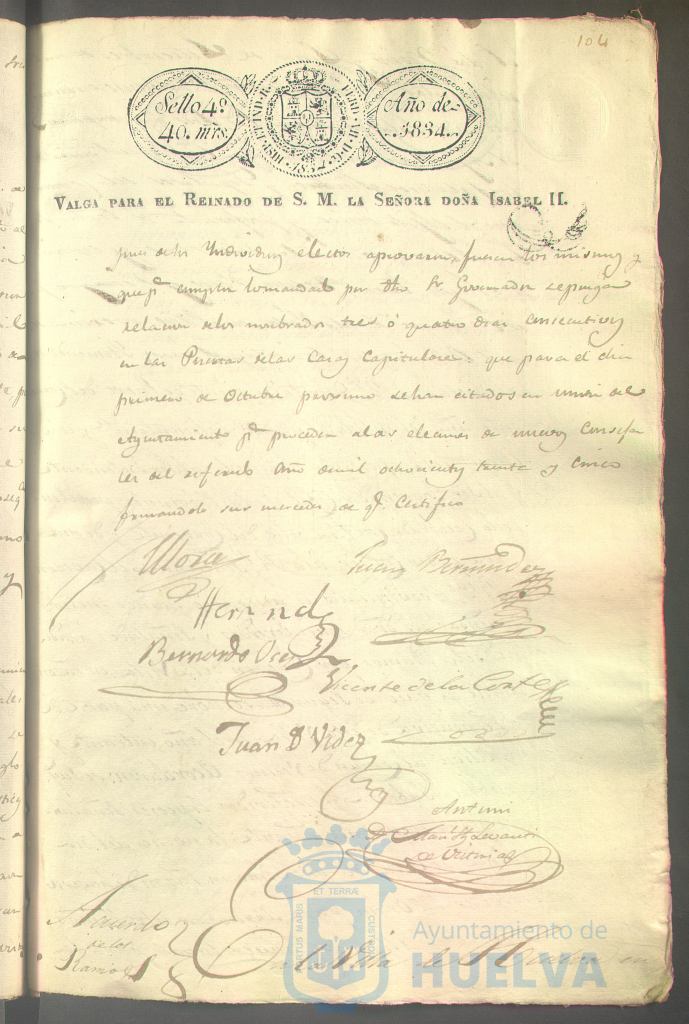 104
Sello 4º
40. mrs.
HISP. ET IND. R. FERD. VII D. G.
1834
Año de
1834.
VALGA PARA EL REINADO DE S. M. LA SEÑORA DOÑA ISABEL II.
pues de los Individuos electos aprovaron, fueran los mismos y
que pª cumplir lo mandado por dho Sr. Governador se ponga
relacion de los nombrados tres ó quatro dias consecutivos
en las Puertas de las Casas Capitulares: que para el dia
primero de Octubre proximo se han citados en union del
Ayuntamiento pª proceder a las elecciones de nuevos Conseja
les del referido año de mil ochocientos treinta y cinco
firmandolo sus mercedes de qe. Certifico
Mora
Juan Bermudez
Hernndz
Bernardo
Vicente de la Corte
Juan D Videz
Antemi
de
Acuerdo
de los
Ramos
En la Villa de Huelva en
PORTUS MARIS ET TERRÆ CUSTODIA
Ayuntamiento de
HUELVA